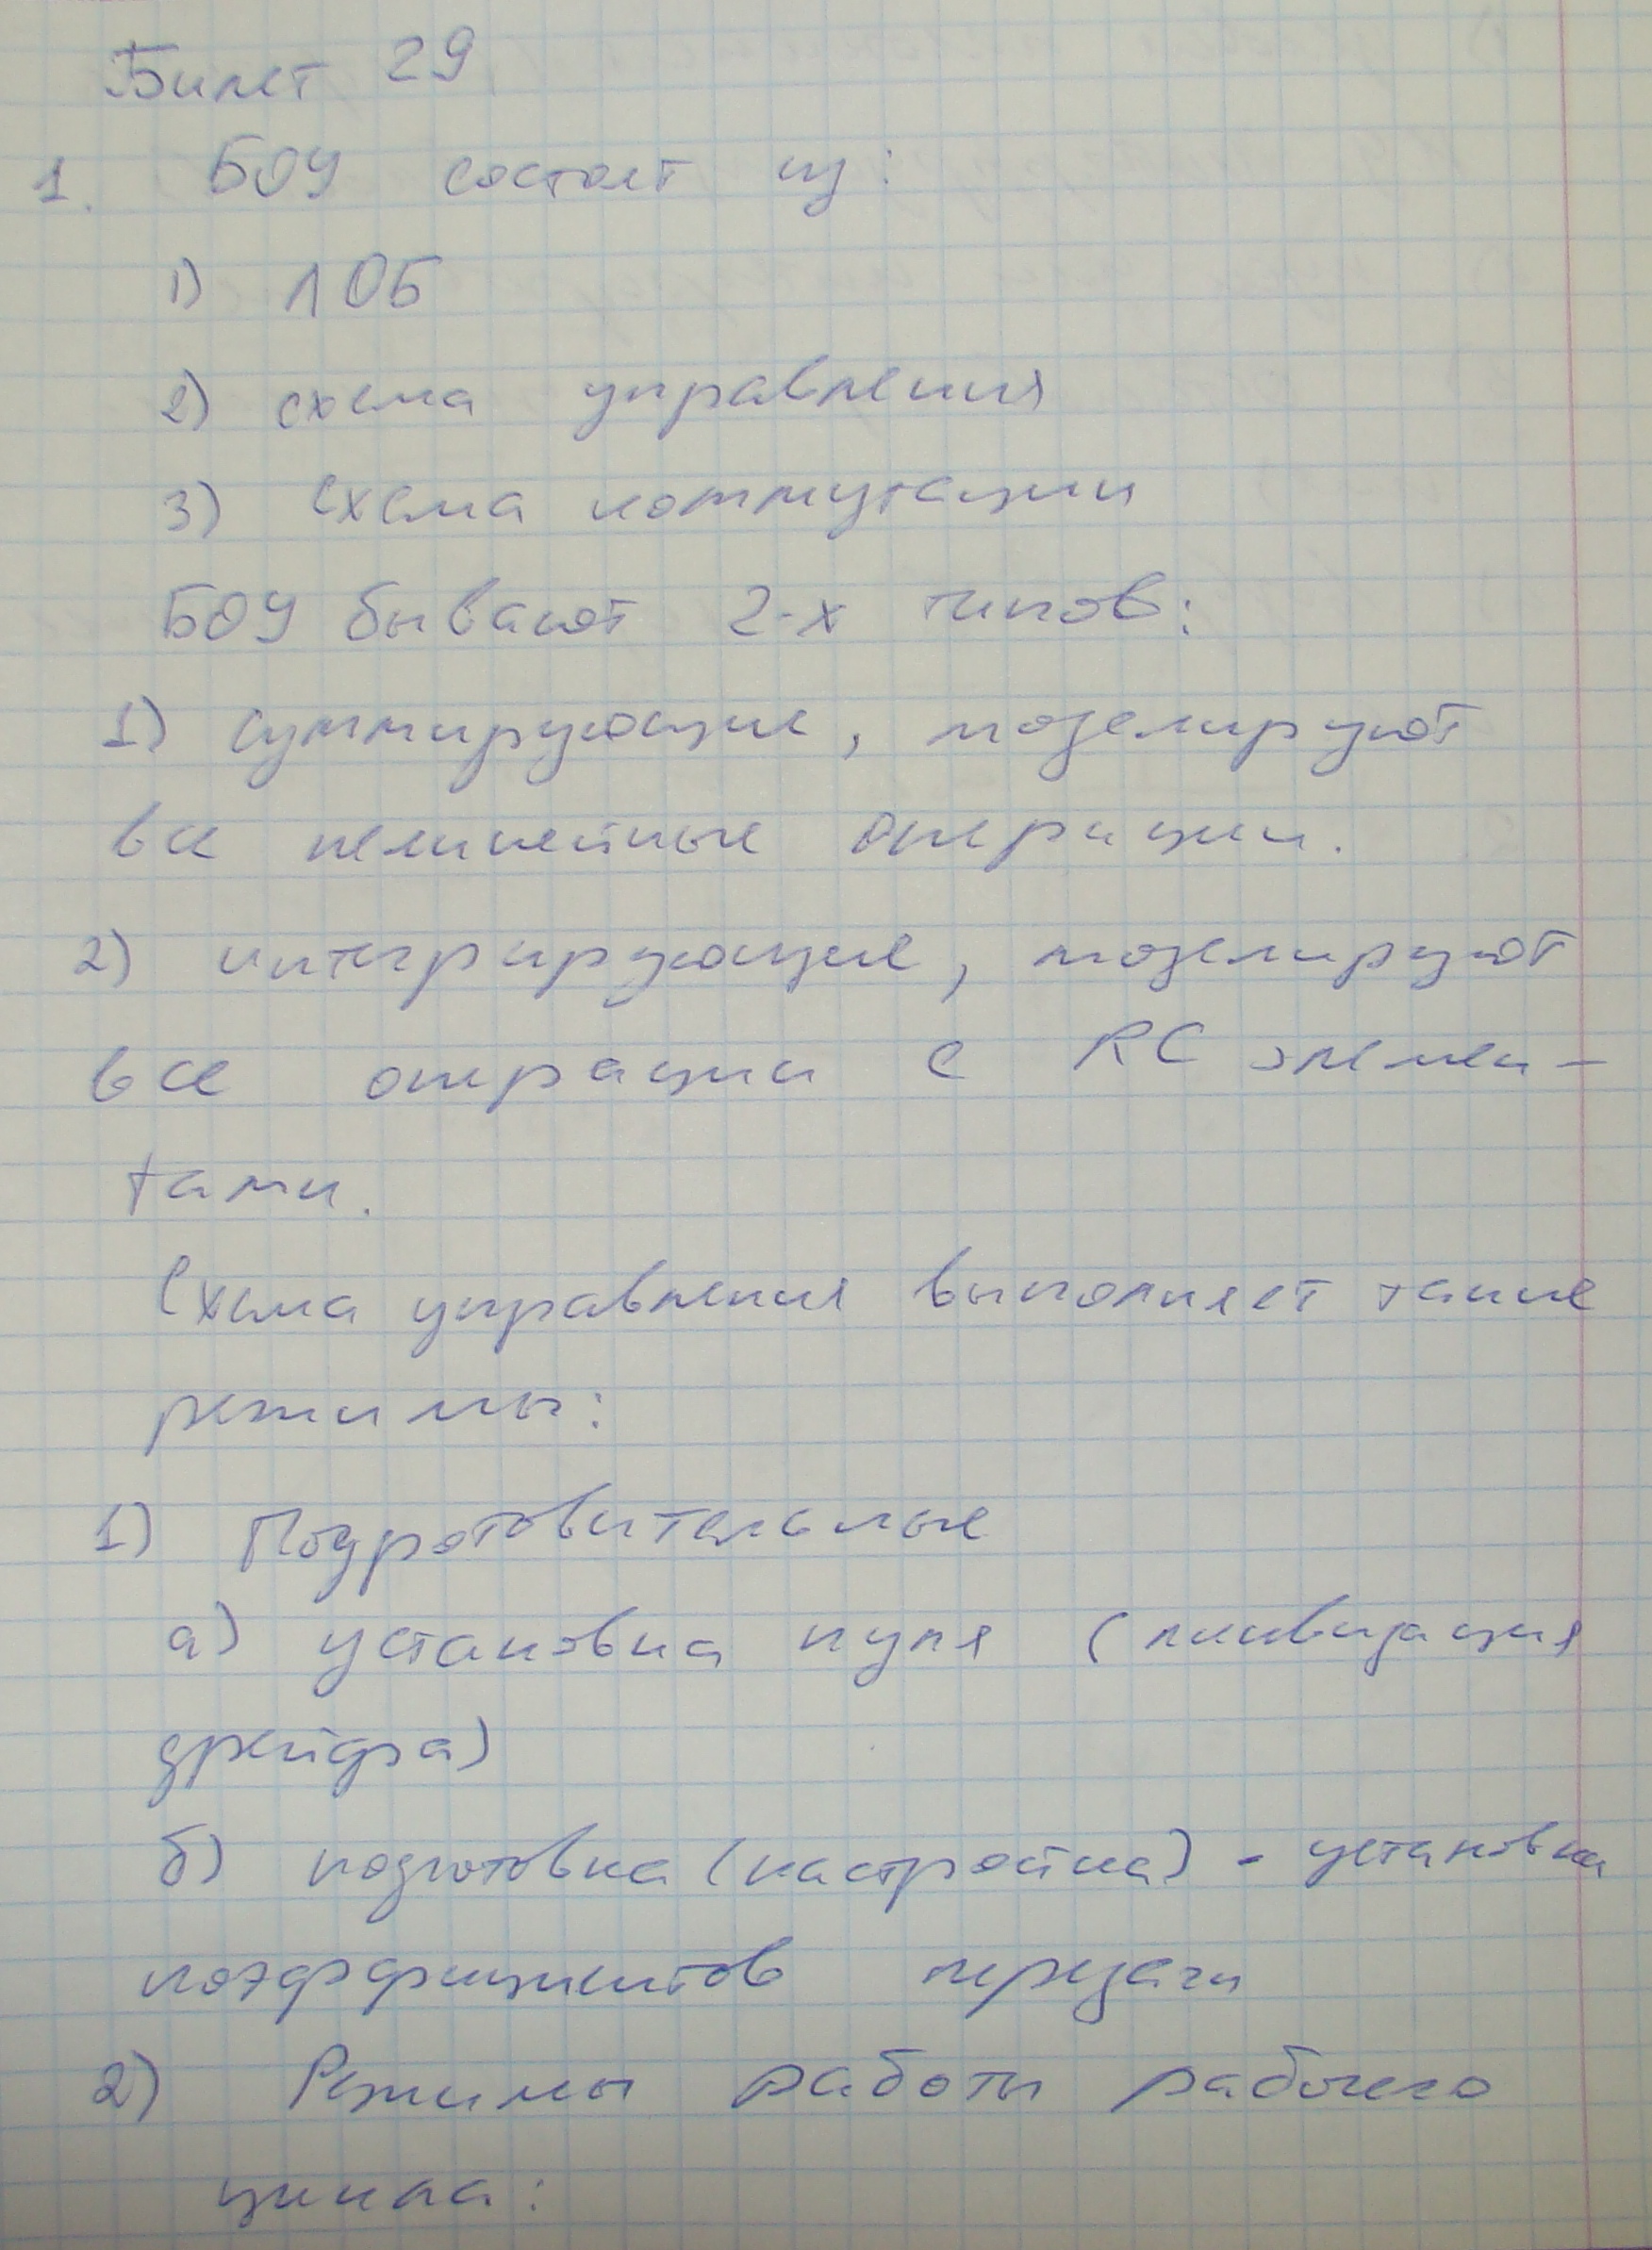 Билет 29
1. БОУ состоит из:
1) ЛОБ
2) схема управления
3) схема коммутации
БОУ бывают 2-х типов:
1) суммирующие, моделируют
все нелинейные операции.
2) интегрирующие, моделируют
все операции с RC элемен-
тами.
Схема управления выполняет такие
режимы:
1) Подготовительные
а) установка нуля (ликвидация
дрейфа)
б) подготовка (настройка) - установка
коэффициентов передачи
2) Режимы работы рабочего
цикла: